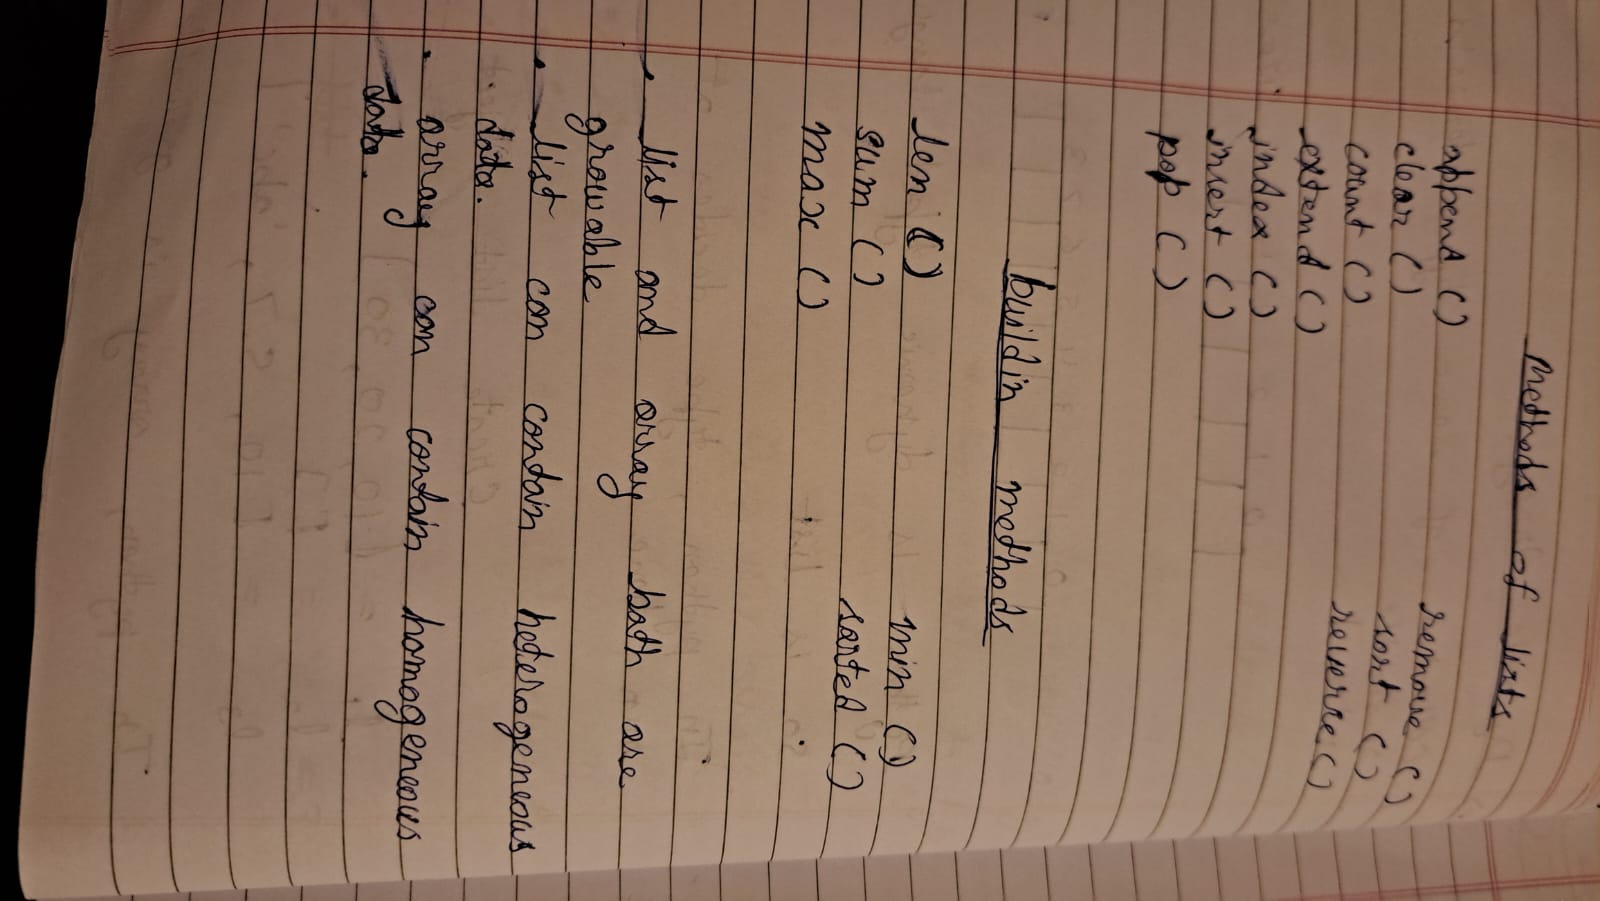 Methods of lists
append ()
clear ()
count ()
extend ()
index ()
insert ()
pop ()
remove ()
sort ()
reverse ()
buildin methods
len ()
sum ()
max ()
min ()
sorted ()
list and array both are
growable
list can contain heterogeneous
data.
array can contain homogeneous
data.